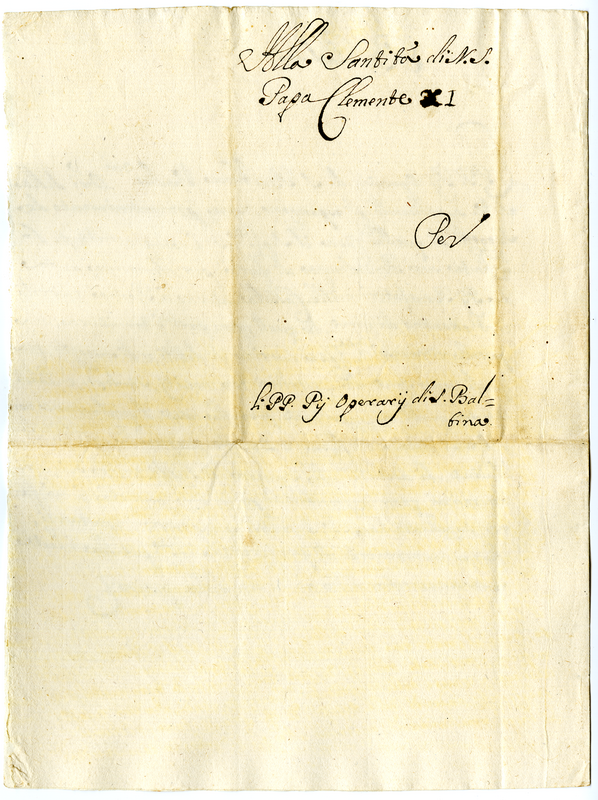 Alla Santità di N. S.
Papa Clemente XI
Per
li PP. Pij Operarij di S. Bal=
bina.